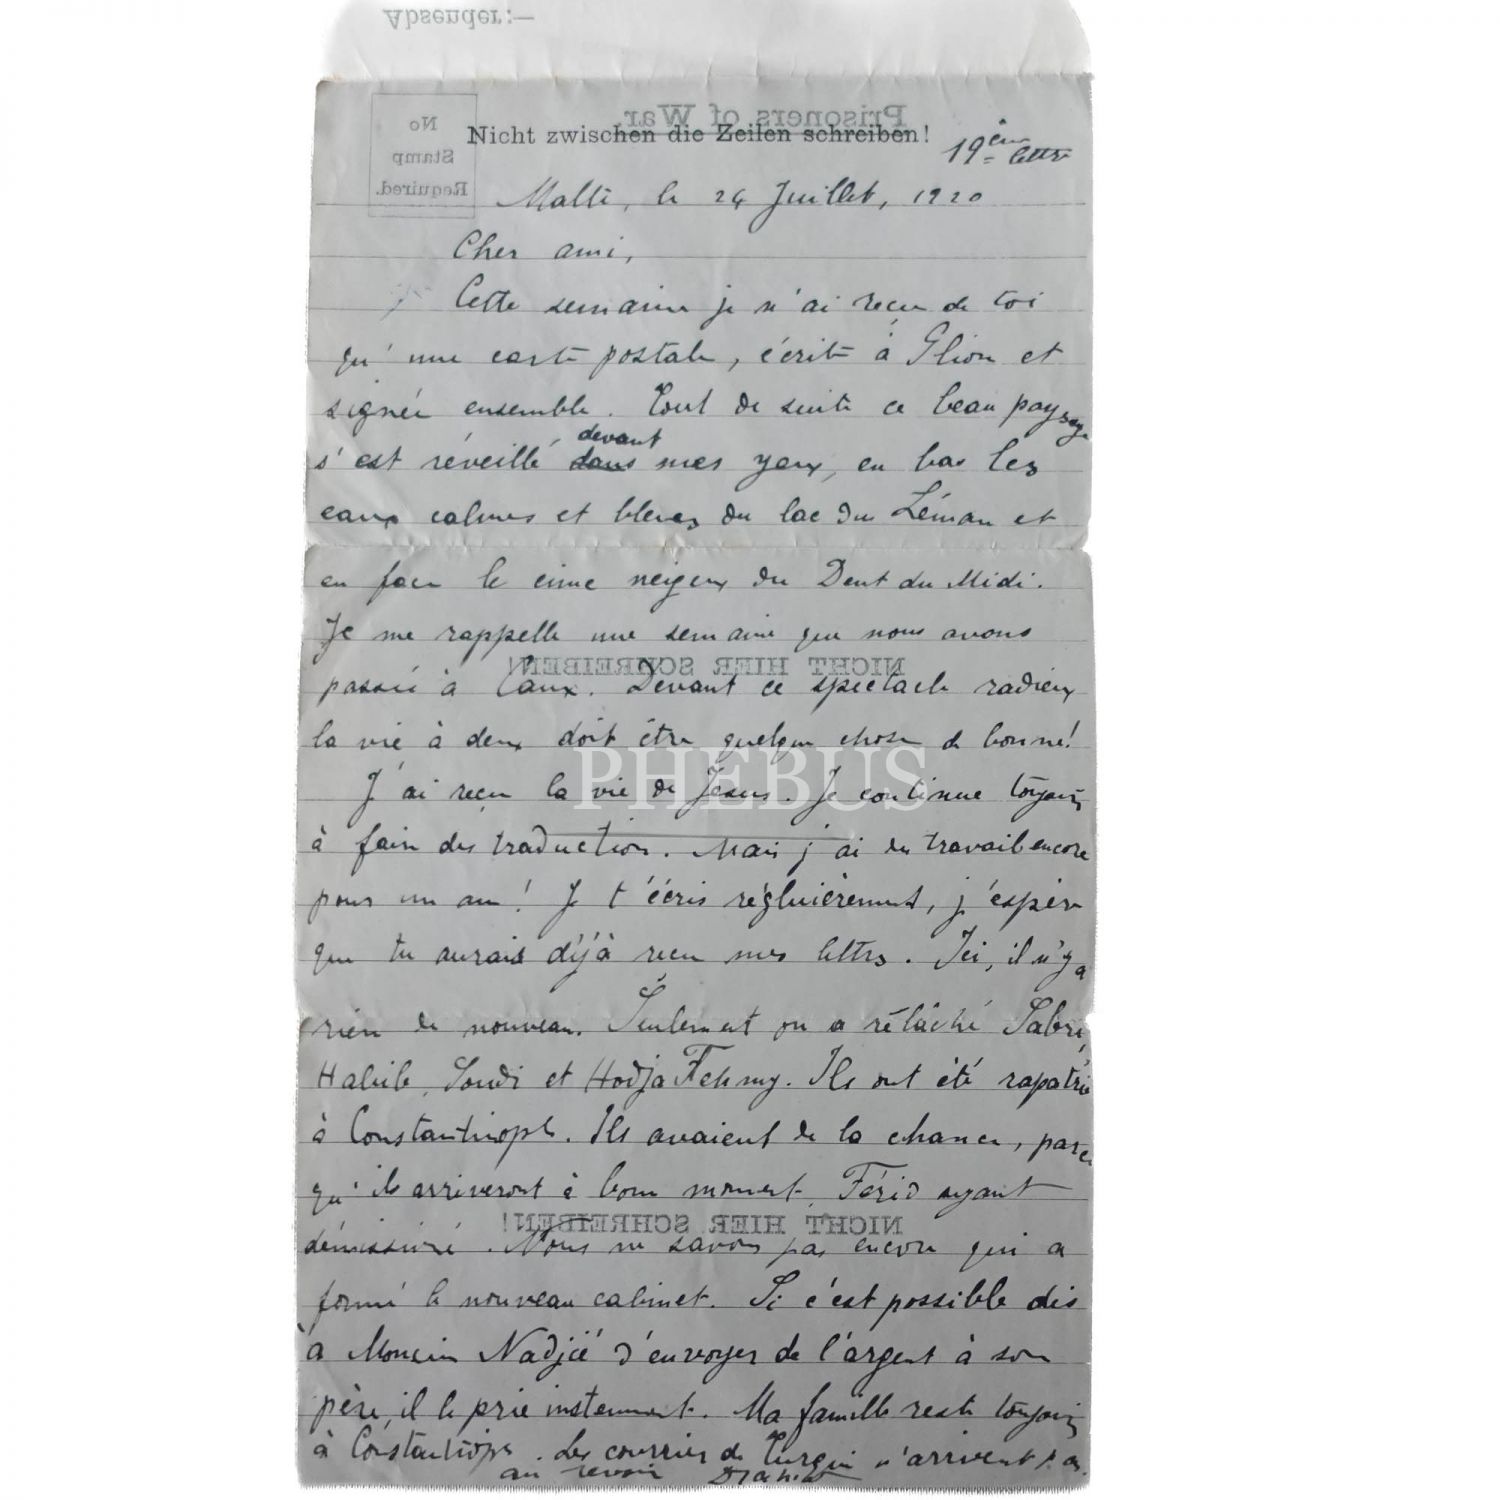 Absender:—
Prisoners of War.
No
Stamp
Required.
Nicht zwischen die Zeilen schreiben!
19ème lettre
Malte, le 24 Juillet, 1920
Cher ami,
Cette semaine je n'ai reçu de toi
qu'une carte postale, écrite à Glion et
signée ensemble. Tout de suite ce beau paysage
s'est réveillé dans devant mes yeux, en bas les
eaux calmes et bleues du lac du Léman et
en face le cime neigeux du Dent du Midi.
Je me rappelle une semaine que nous avons
NICHT HIER SCHREIBEN!
passée à Caux. Devant ce spectacle radieux
la vie à deux doit être quelque chose de bonne!
PHEBUS
J'ai reçu la vie de Jésus. Je continue toujours
à faire des traduction. Mais j'ai du travail encore
pour un an! Je t'écris régluièrement, j'espère
que tu aurais déjà reçu mes lettres. Ici, il n'y a
rien de nouveau. Seulement on a rélâché Sabri,
Habib, Soudi et Hodja Fehmy. Ils ont été rapatrié
à Constantinople. Ils avaient de la chance, parce
qu'ils arriveront à bon moment, Férid ayant
NICHT HIER SCHREIBEN!
démissioné. Nous ne savons pas encore qui a
formé le nouveau cabinet. Si c'est possible dis
à Moucin Nadjié d'envoyer de l'argent à son
père, il le prie instemment. Ma famille reste toujours
à Constantinople. Les courriers de Turquie n'arrivent pas.
au revoir